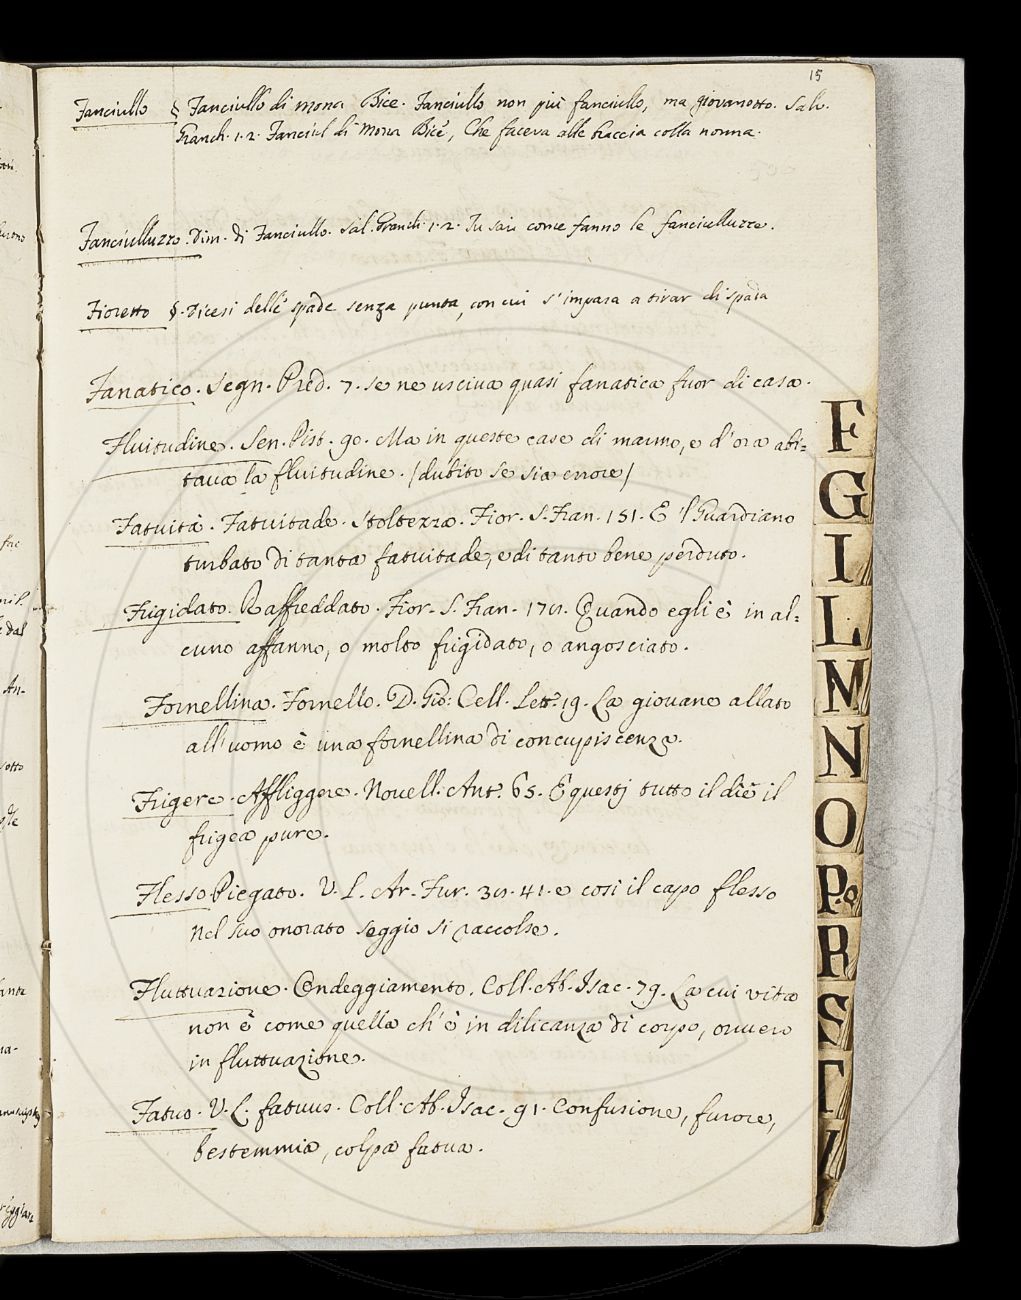 15
Fanciullo § Fanciullo di mona Bice. Fanciullo non più fanciullo, ma giovanotto. Salv.
Granch. 1. 2. Fanciul di Mona Bice, Che faceva alle braccia colla nonna.
Fanciulluzzo. Dim. di Fanciullo. Sal. Granch. 1. 2. Tu sai come fanno le fanciulluzze.
Fioretto §. Dicesi delle spade senza punta, con cui s'impara a tirar di spada
Fanatico. Segn. Pred. 7. se ne usciva quasi fanatica fuor di casa.
Fluitudine. Sen. Pist. 90. Ma in queste case di marmo, e d'oro abi=
tava la fluitudine. (dubito se sia errore)
Fatuità. Fatuitade. Stoltezza. Fior. S. Fran. 151. E 'l Guardiano
turbato di tanta fatuitade, e di tanto bene perduto.
Frigidato. Raffreddato. Fior. S. Fran. 171. Quando egli è in al=
cuno affanno, o molto frigidato, o angosciato.
Fornellina. Fornello. D. Gio: Cell. Lett. 19. La giovane allato
all'uomo è una fornellina di concupiscenza.
Frigere. Affliggere. Novell. Ant. 65. E questi tutto il die il
frigea pure.
Flesso Piegato. V. L. Ar. Fur. 31. 41. e così il capo flesso
Nel suo onorato seggio si raccolse.
Fluttuazione. Ondeggiamento. Coll. Ab. Isac. 79. La cui vita
non è come quella ch'è in dilicanza di corpo, ovvero
in fluttuazione.
Fatuo. V. L. fatuus. Coll. Ab. Isac. 91. Confusione, furore,
bestemmia, colpa fatua.
F
G
I
L
M
N
O
P.Q
R
S
T
V